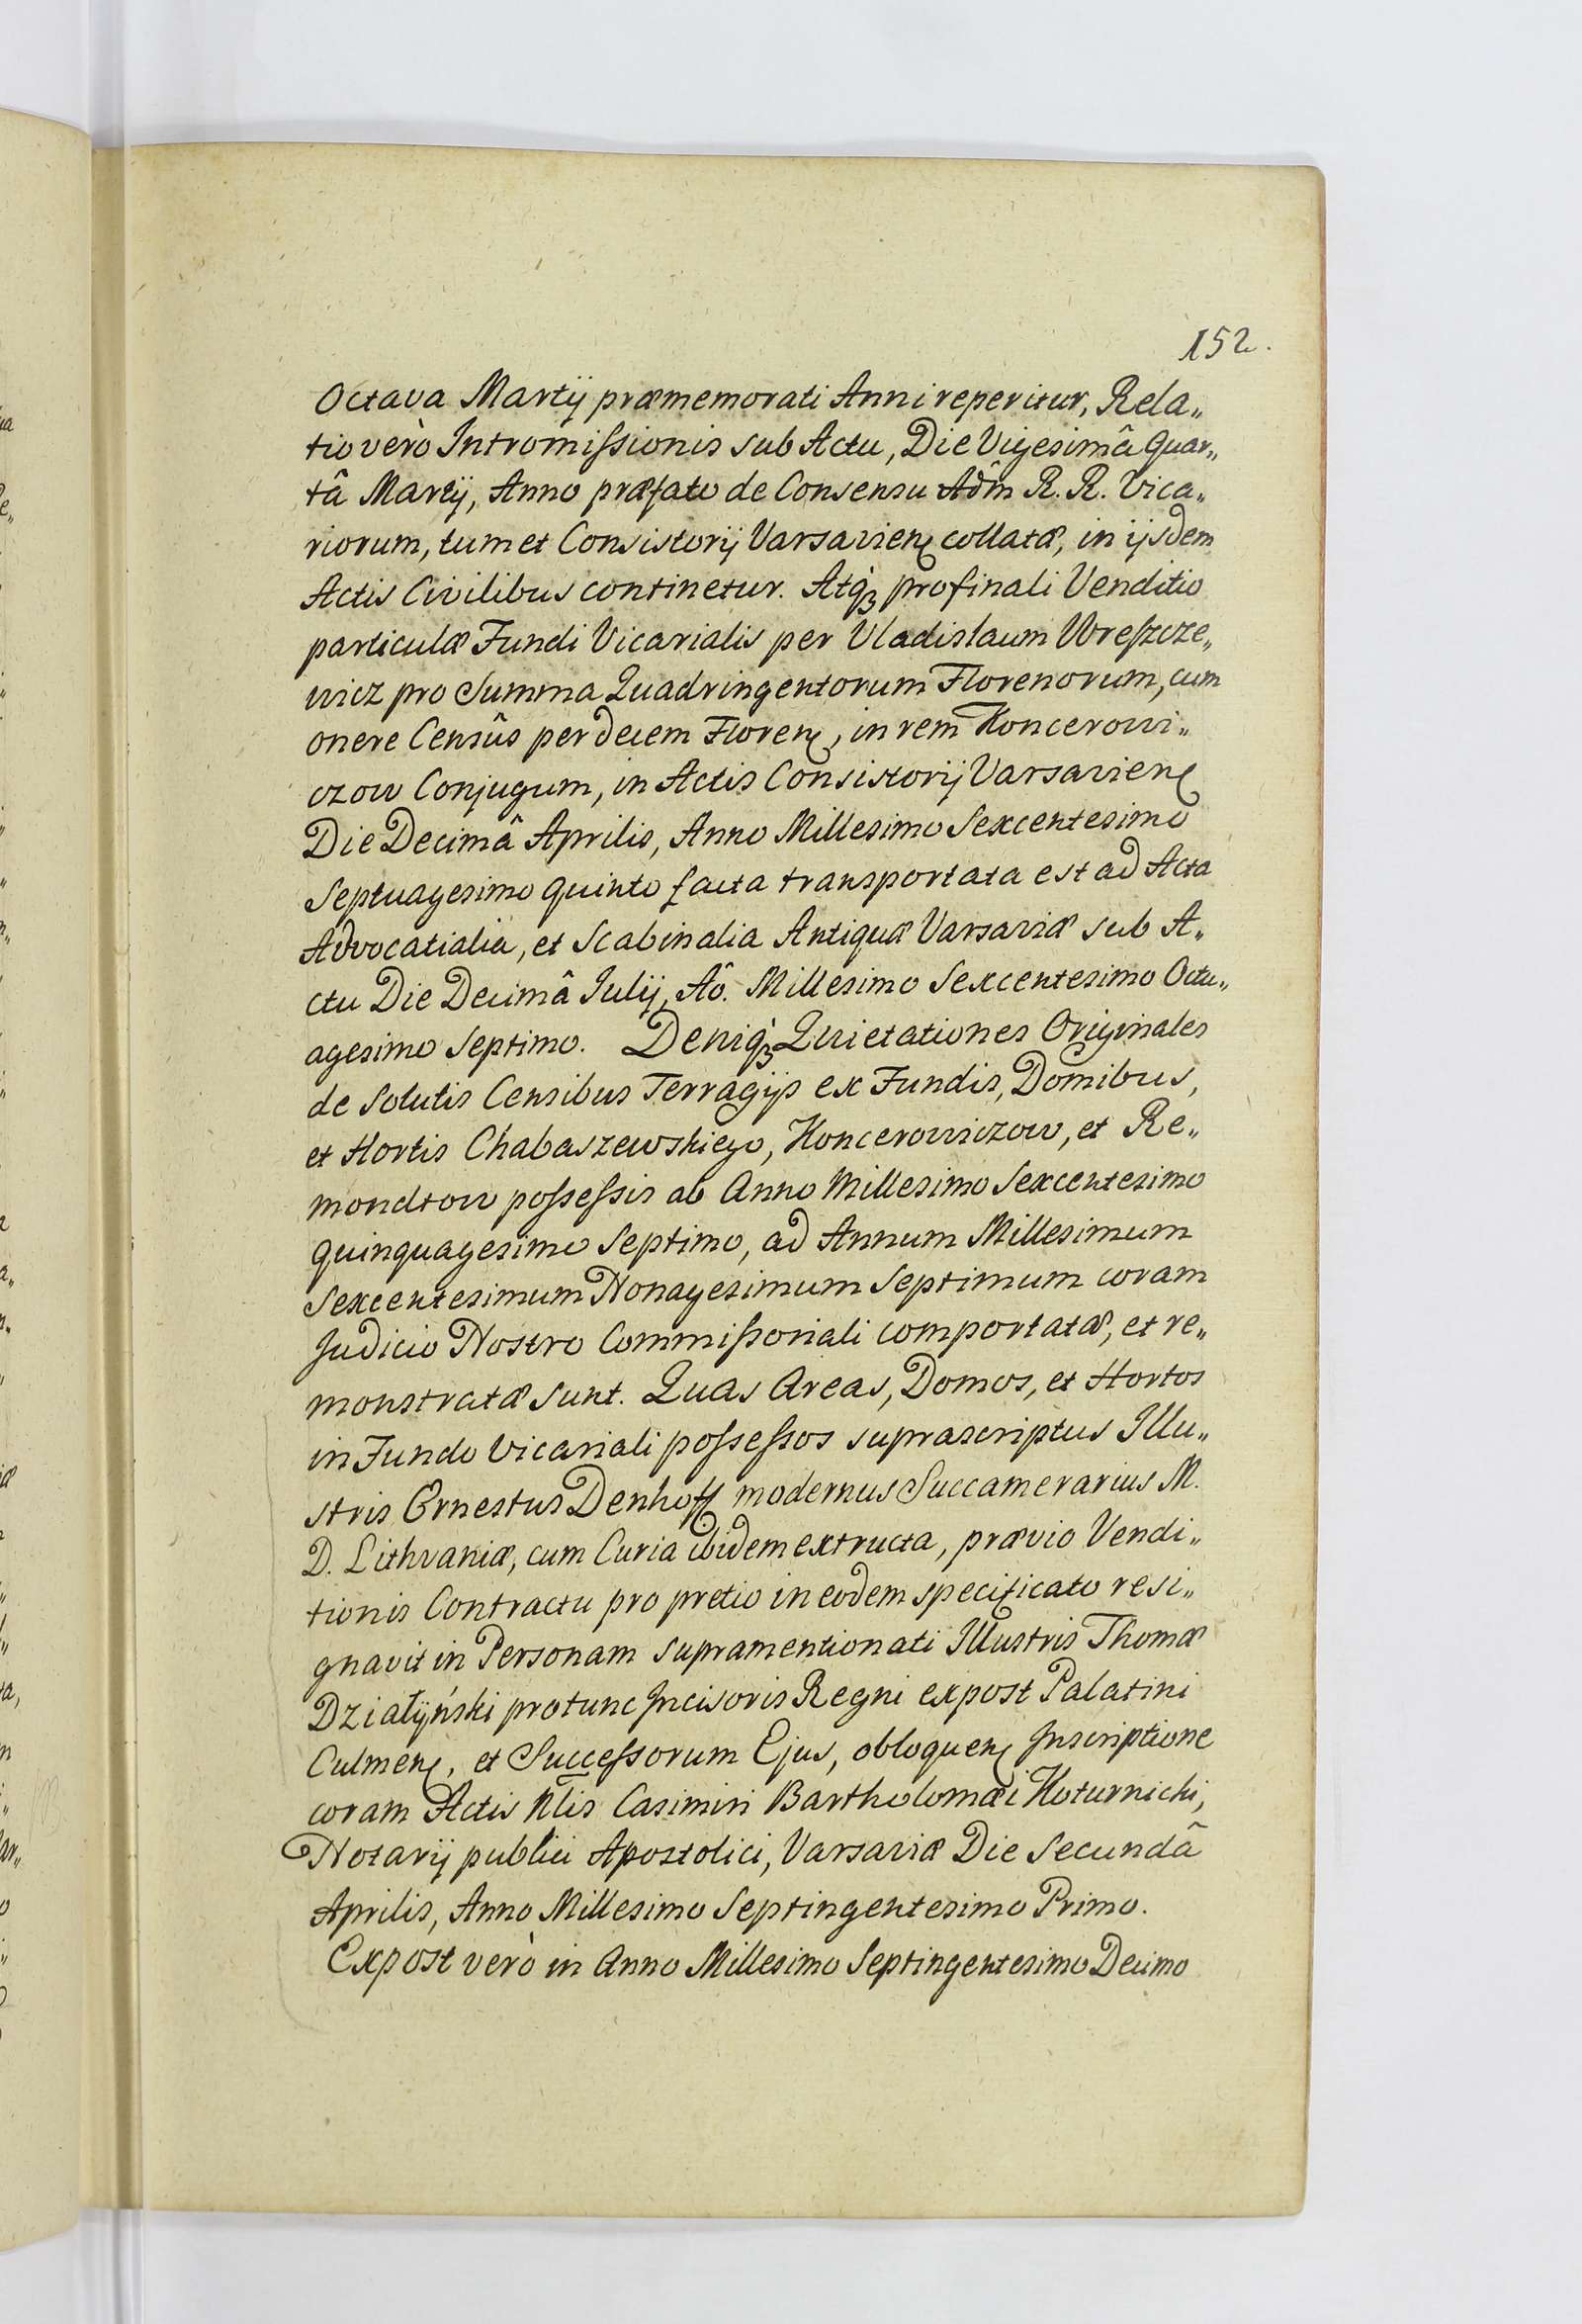 152.
Octava Martij præmemorati Anni reperitur, Rela„
tio verò Intromißionis sub Actu, Die Vigesimâ Quar„
tâ Martij, Anno præfato de Consensu Adm̂ R. R. Vica„
riorum, tum et Consistorij Varsavien collatæ, in ijsdem
Actis Civilibus continetur. Atq̀ꝫ pro finali Venditio
particulæ Fundi Vicarialis per Vladislaum Wreszcze„
wicz pro Summa Quadringentorum Florenorum, cum
onere Censûs per decem Floren, in rem Koncerowi„
czow Conjugum, in Actis Consistorij Varsavien
Die Decimâ Aprilis, Anno Millesimo Sexcentesimo
Septuagesimo quinto facta transportata est ad Acta
Advocatialia, et Scabinalia Antiquæ Varsaviæ sub A„
ctu Die Decimâ Julij, Aô. Millesimo Sexcentesimo Octu„
agesimo Septimo. Deniq̀ꝫ Quietationes Originales
de Solutis Censibus Terragijs ex Fundis, Domibus,
et Hortis Chabaszewskiego, Koncerowiczow, et Re„
mondtow poßeßis ab Anno Millesimo Sexcentesimo
quinquagesimo Septimo, ad Annum Millesimum
Sexcentesimum Nonagesimum Septimum coram
Judicio Nostro Commißoriali comportatæ, et re„
monstratæ sunt. Quas Areas, Domos, et Hortos
in Fundo Vicariali poßeßos suprascriptus Illu„
stris Ernestus Denhoff modernus Succamerarius M.
D. Lithvaniæ, cum Curia ibidem extructa, prævio Vendi„
tionis Contractu pro pretio in eodem specificato resi„
gnavit in Personam supramentionati Illustris Thomæ
Działyński protunc Incisoris Regni expost Palatini
Culmen, et Succeßorum Ejus, obloquen Inscriptione
coram Actis Nlis Casimiri Bartholomæi Koturnicki,
Notarij publici Apostolici, Varsaviæ Die Secundâ
Aprilis, Anno Millesimo Septingentesimo Primo.
Expost verò in Anno Millesimo Septingentesimo Decimo